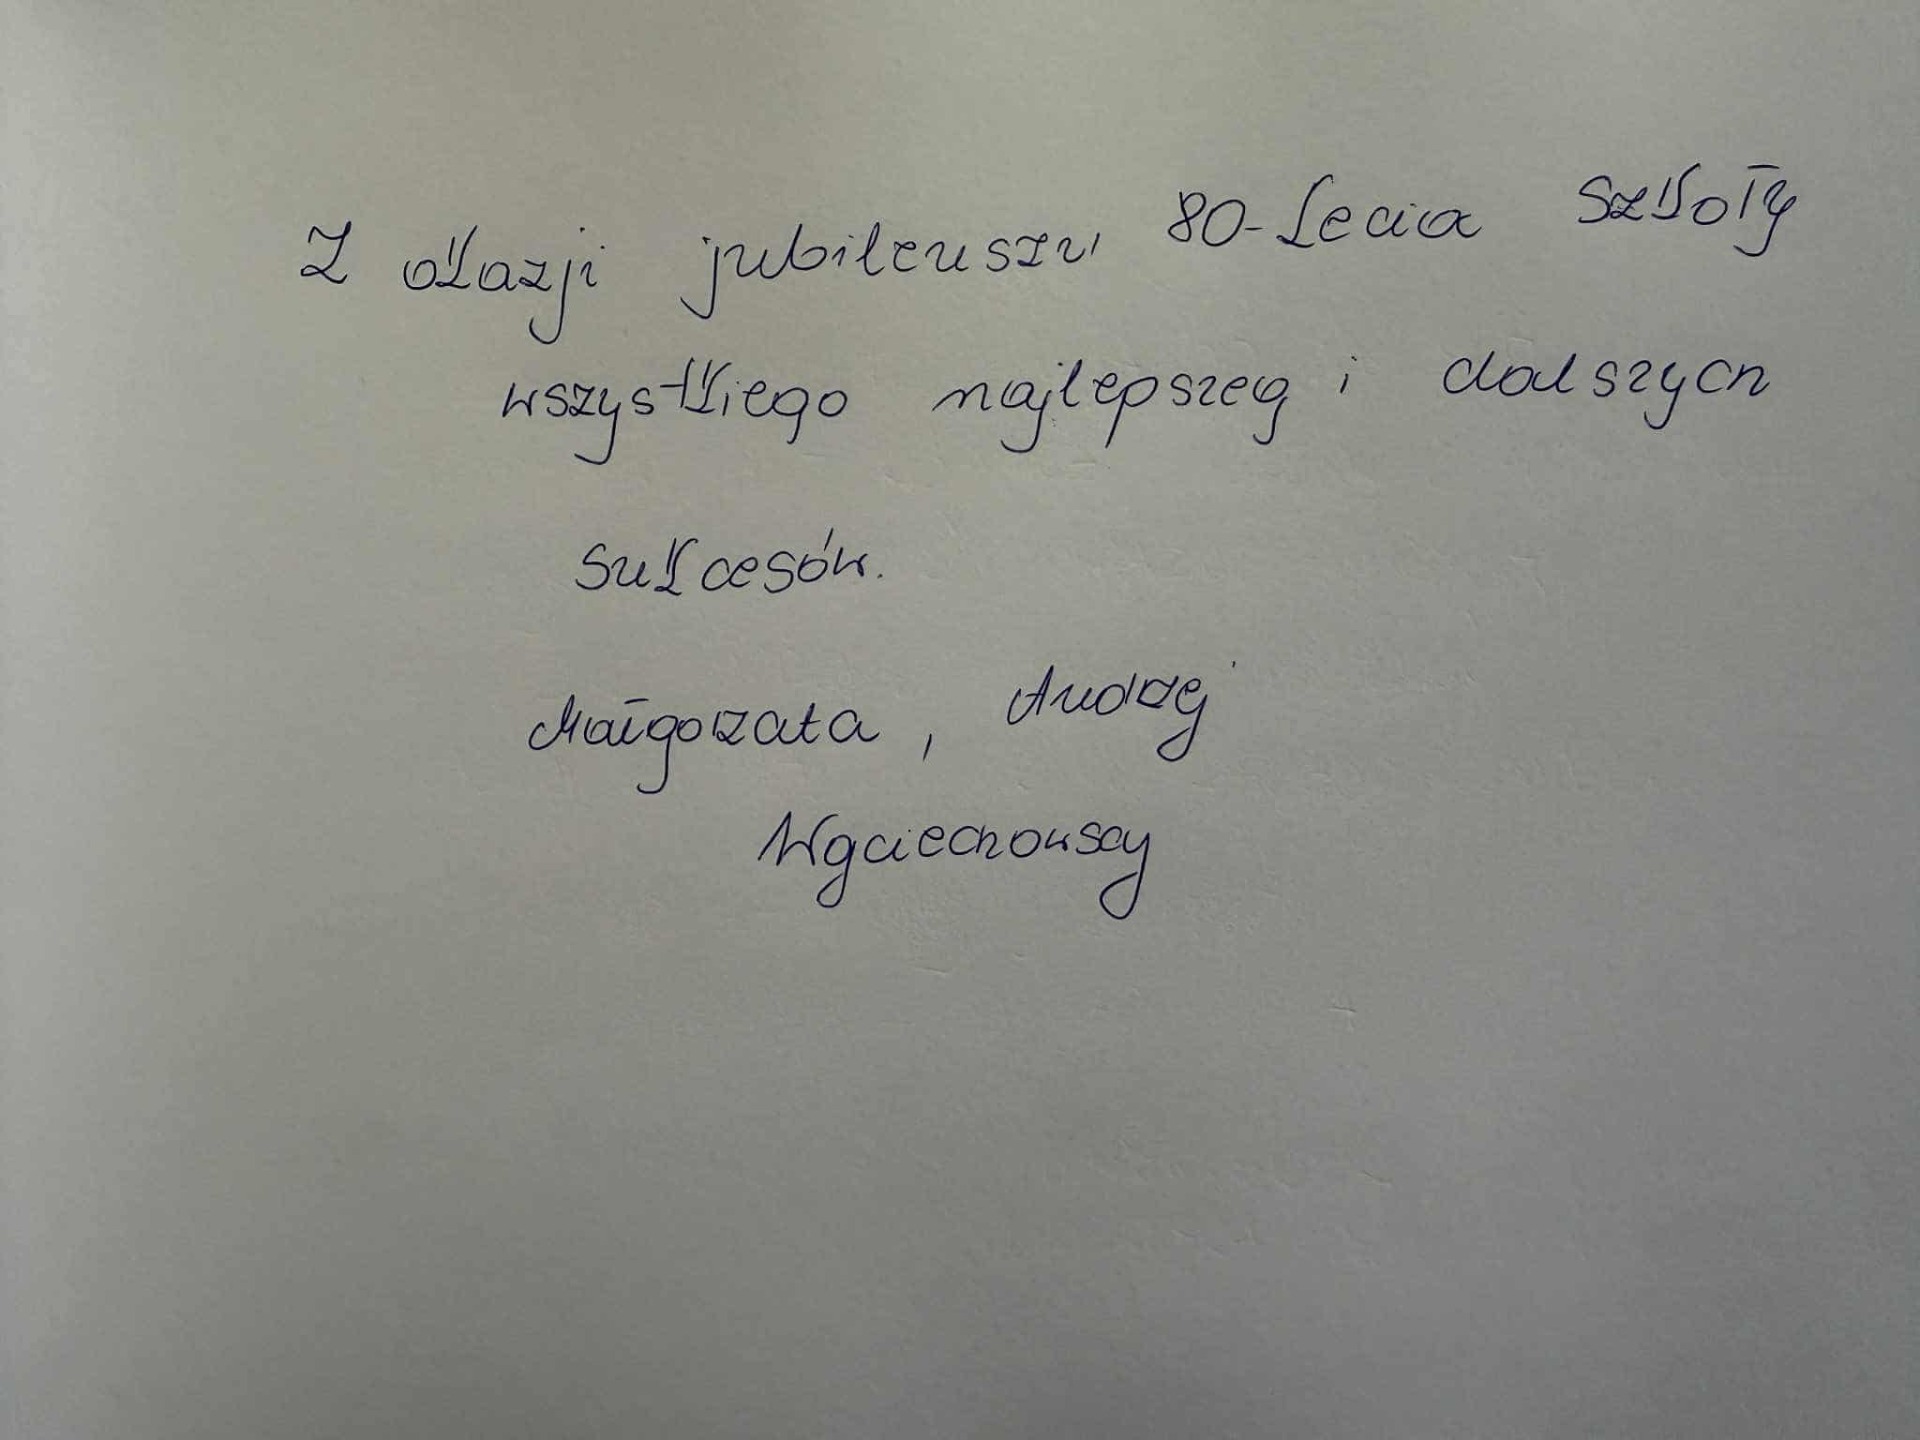 Z okazji jubileuszu 80-lecia szkoły
wszystkiego najlepszeg i dalszych
sukcesów.
Małgorzata, Andrzej
Wojciechowscy